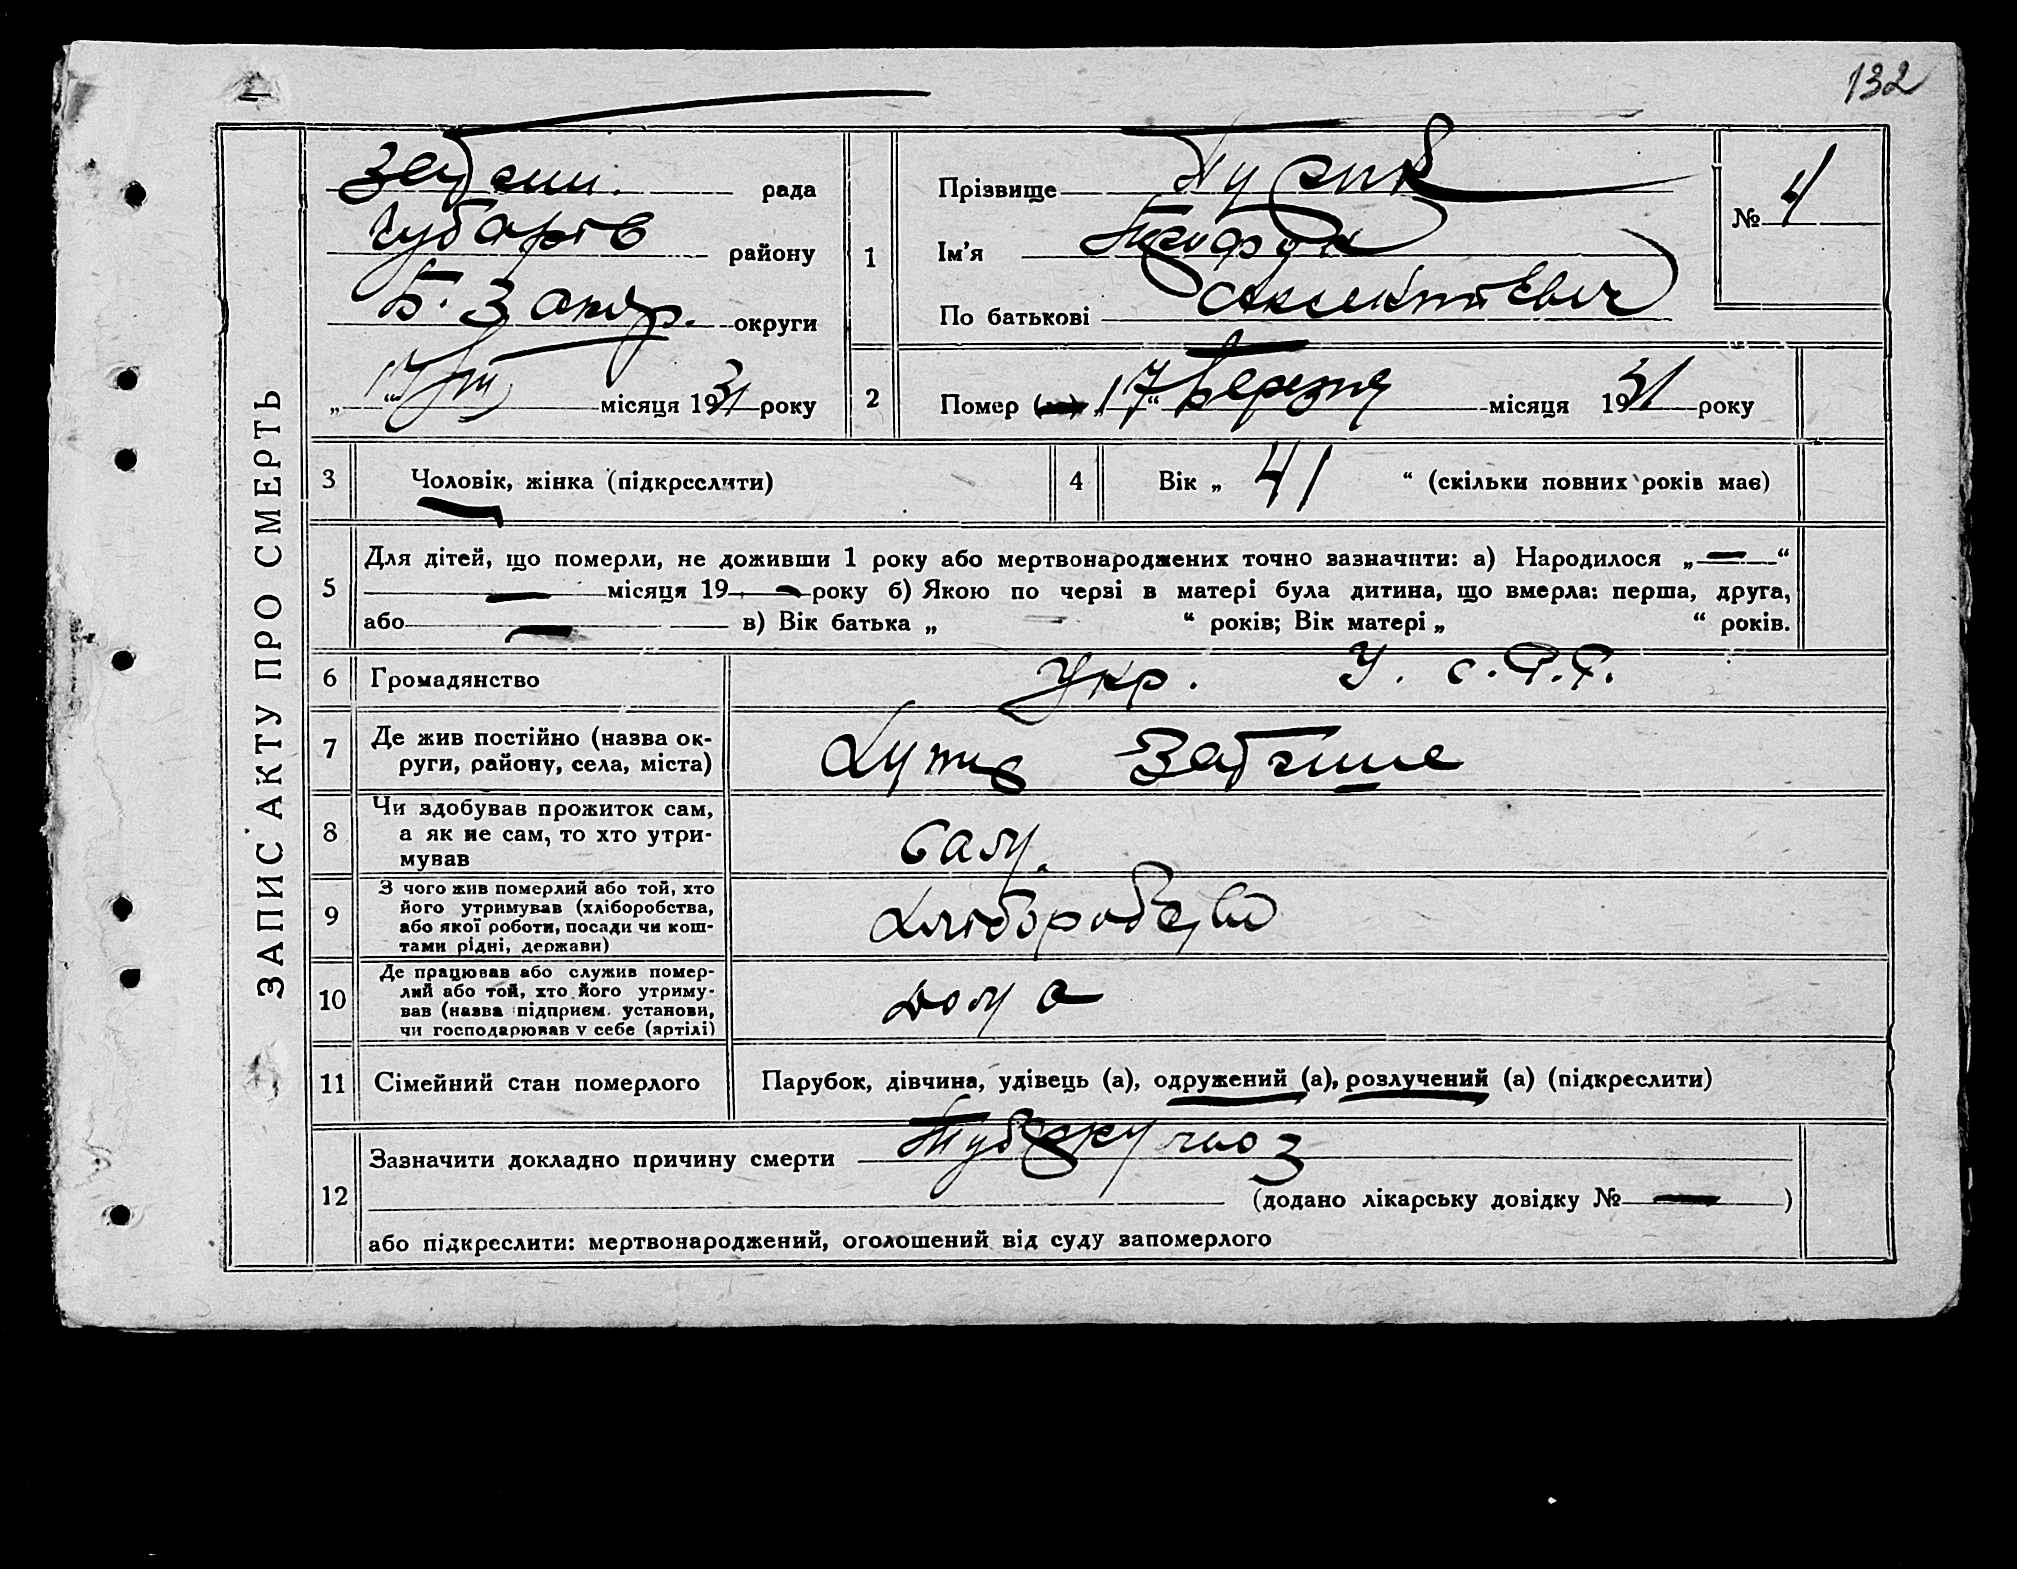 132
ЗАПИС АКТУ ПРО СМЕРТЬ
рада
Чубарів району
округи
місяця 1931 року
1
Прізвище
Ім'я
По батькові
№ 4
2
Помер „17“ Березня місяця 1931 року
3 Чоловік, жінка (підкреслити)
4 Вік „ 41 “ (скільки повних років має)
5
Для дітей, що померли, не доживши 1 року або мертвонароджених точно зазначити: а) Народилося „—“
— місяця 19 — року б) Якою по черзі в матері була дитина, що вмерла: перша, друга,
або — в) Вік батька „ “ років; Вік матері „ “ років.
6 Громадянство Укр. У. с. Р. Р.
7 Де жив постійно (назва ок-
руги, району, села, міста)
8 Чи здобував прожиток сам,
а як не сам, то хто утри-
мував
Сам.
9 З чого жив померлий або той, хто
його утримував (хліборобства,
або якої роботи, посади чи кош-
тами рідні, держави)
10 Де працював або служив помер-
лий або той, хто його утриму-
вав (назва підприєм. установи,
чи господарював у себе (артілі)
дома
11 Сімейний стан померлого Парубок, дівчина, удівець (а), одружений (а), розлучений (а) (підкреслити)
12 Зазначити докладно причину смерти Туберкульоз
(додано лікарську довідку № — )
або підкреслити: мертвонароджений, оголошений від суду запомерлого